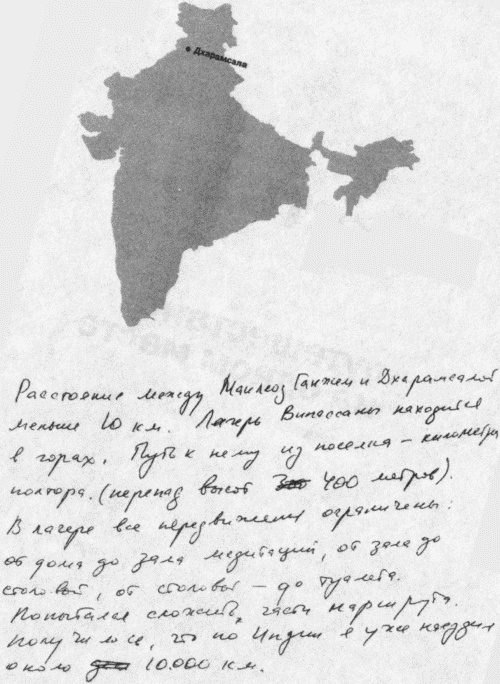 Дхарамсала
Расстояние между Маклеод Ганжем и Дхарамсалой
меньше 10 км. Лагерь Випассаны находится
в горах. Путь к нему из поселка – километра
полтора. (перепад высот 400 метров).
В лагере все передвижения ограничены:
от дома до зала медитаций, от зала до
столовой, от столовой – до туалета.
Попытался сложить части маршрута.
Получилось, что по Индии я уже наездил
около 10.000 км.